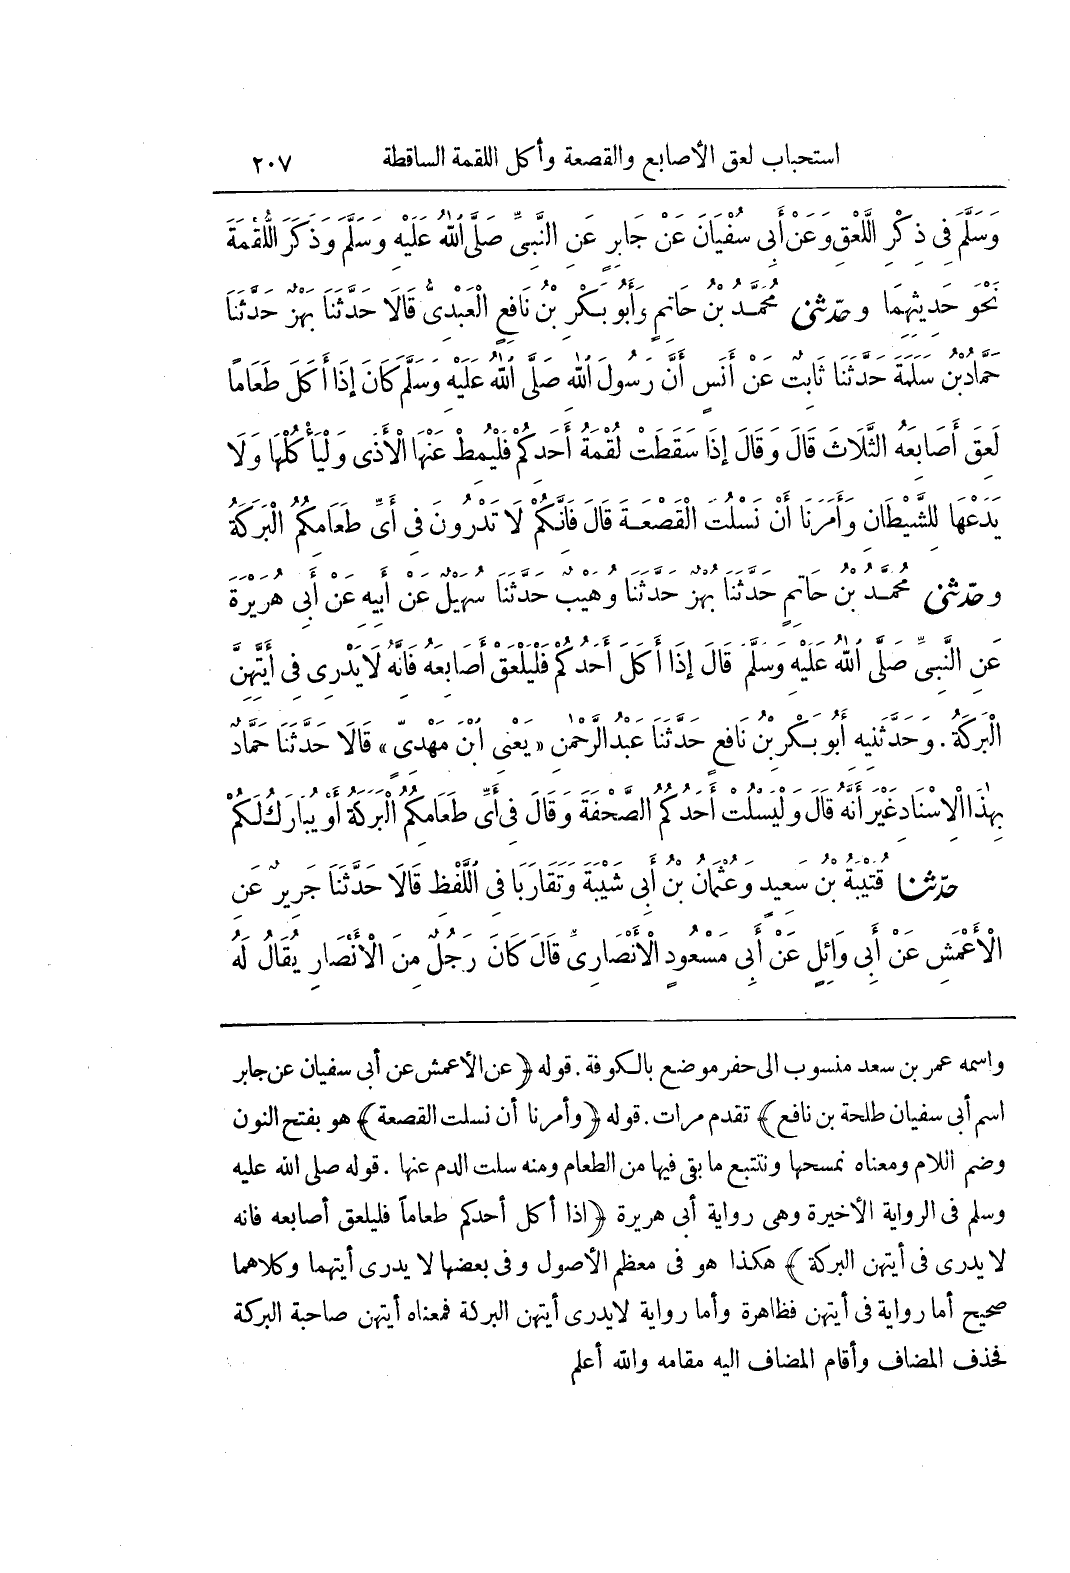 استحباب لعق الأصابع والقصعة وأكل اللقمة الساقطة ٢٠٧
وَسَلَّمَ فِى ذِكْرِ اللَّعْقِ وَعَنْ أَبِى سُفْيَانَ عَنْ جَابِرٍ عَنِ النَّبِىِّ صَلَّى اللهُ عَلَيْهِ وَسَلَّمَ وَذَكَرَ اللُّقْمَةَ
نَحْوَ حَدِيثِهِمَا وحدّثنى مُحَمَّدُ بْنُ حَاتِمٍ وَأَبُو بَكْرِ بْنُ نَافِعٍ الْعَبْدِىُّ قَالَا حَدَّثَنَا بَهْزٌ حَدَّثَنَا
حَمَّادُ بْنُ سَلَمَةَ حَدَّثَنَا ثَابِتٌ عَنْ أَنَسٍ أَنَّ رَسُولَ اللهِ صَلَّى اللهُ عَلَيْهِ وَسَلَّمَ كَانَ إِذَا أَكَلَ طَعَامًا
لَعِقَ أَصَابِعَهُ الثَّلَاثَ قَالَ وَقَالَ إِذَا سَقَطَتْ لُقْمَةُ أَحَدِكُمْ فَلْيُمِطْ عَنْهَا الْأَذَى وَلْيَأْكُلْهَا وَلَا
يَدَعْهَا لِلشَّيْطَانِ وَأَمَرَنَا أَنْ نَسْلُتَ الْقَصْعَةَ قَالَ فَانَّكُمْ لَا تَدْرُونَ فِى أَىِّ طَعَامِكُمُ الْبَرَكَةُ
وحدّثنى مُحَمَّدُ بْنُ حَاتِمٍ حَدَّثَنَا بَهْزٌ حَدَّثَنَا وُهَيْبٌ حَدَّثَنَا سُهَيْلٌ عَنْ أَبِيهِ عَنْ أَبِى هُرَيْرَةَ
عَنِ النَّبِىِّ صَلَّى اللهُ عَلَيْهِ وَسَلَّمَ قَالَ إِذَا أَكَلَ أَحَدُكُمْ فَلْيَلْعَقْ أَصَابِعَهُ فَانَّهُ لَا يَدْرِى فِى أَيَّتِهِنَّ
الْبَرَكَةُ . وَحَدَّثَنِيهِ أَبُو بَكْرِ بْنُ نَافِعٍ حَدَّثَنَا عَبْدُ الرَّحْمٰنِ «يَعْنِى ابْنَ مَهْدِىٍّ» قَالَا حَدَّثَنَا حَمَّادٌ
بِهٰذَا الْاِسْنَادِ غَيْرَ أَنَّهُ قَالَ وَلْيَسْلُتْ أَحَدُكُمُ الصَّحْفَةَ وَقَالَ فِى أَىِّ طَعَامِكُمُ الْبَرَكَةُ أَوْ يُبَارَكُ لَكُمْ
حدّثنا قُتَيْبَةُ بْنُ سَعِيدٍ وَعُثْمَانُ بْنُ أَبِى شَيْبَةَ وَتَقَارَبَا فِى اللَّفْظِ قَالَا حَدَّثَنَا جَرِيرٌ عَنِ
الْأَعْمَشِ عَنْ أَبِى وَائِلٍ عَنْ أَبِى مَسْعُودٍ الْأَنْصَارِىِّ قَالَ كَانَ رَجُلٌ مِنَ الْأَنْصَارِ يُقَالُ لَهُ
واسمه عمر بن سعد منسوب الى حفر موضع بالكوفة . قوله ﴿عن الأعمش عن أبى سفيان عن جابر
اسم أبى سفيان طلحة بن نافع﴾ تقدم مرات . قوله ﴿وأمرنا أن نسلت القصعة﴾ هو بفتح النون
وضم اللام ومعناه نمسحها ونتتبع ما بقى فيها من الطعام ومنه سلت الدم عنها . قوله صلى الله عليه
وسلم فى الرواية الأخيرة وهى رواية أبى هريرة ﴿اذا أكل أحدكم طعاماً فليلعق أصابعه فانه
لا يدرى فى أيتهن البركة﴾ هكذا هو فى معظم الأصول وفى بعضها لا يدرى أيتهما وكلاهما
صحيح أما رواية فى أيتهن فظاهرة وأما رواية لا يدرى أيتهن البركة فمعناه أيتهن صاحبة البركة
فحذف المضاف وأقام المضاف اليه مقامه والله أعلم